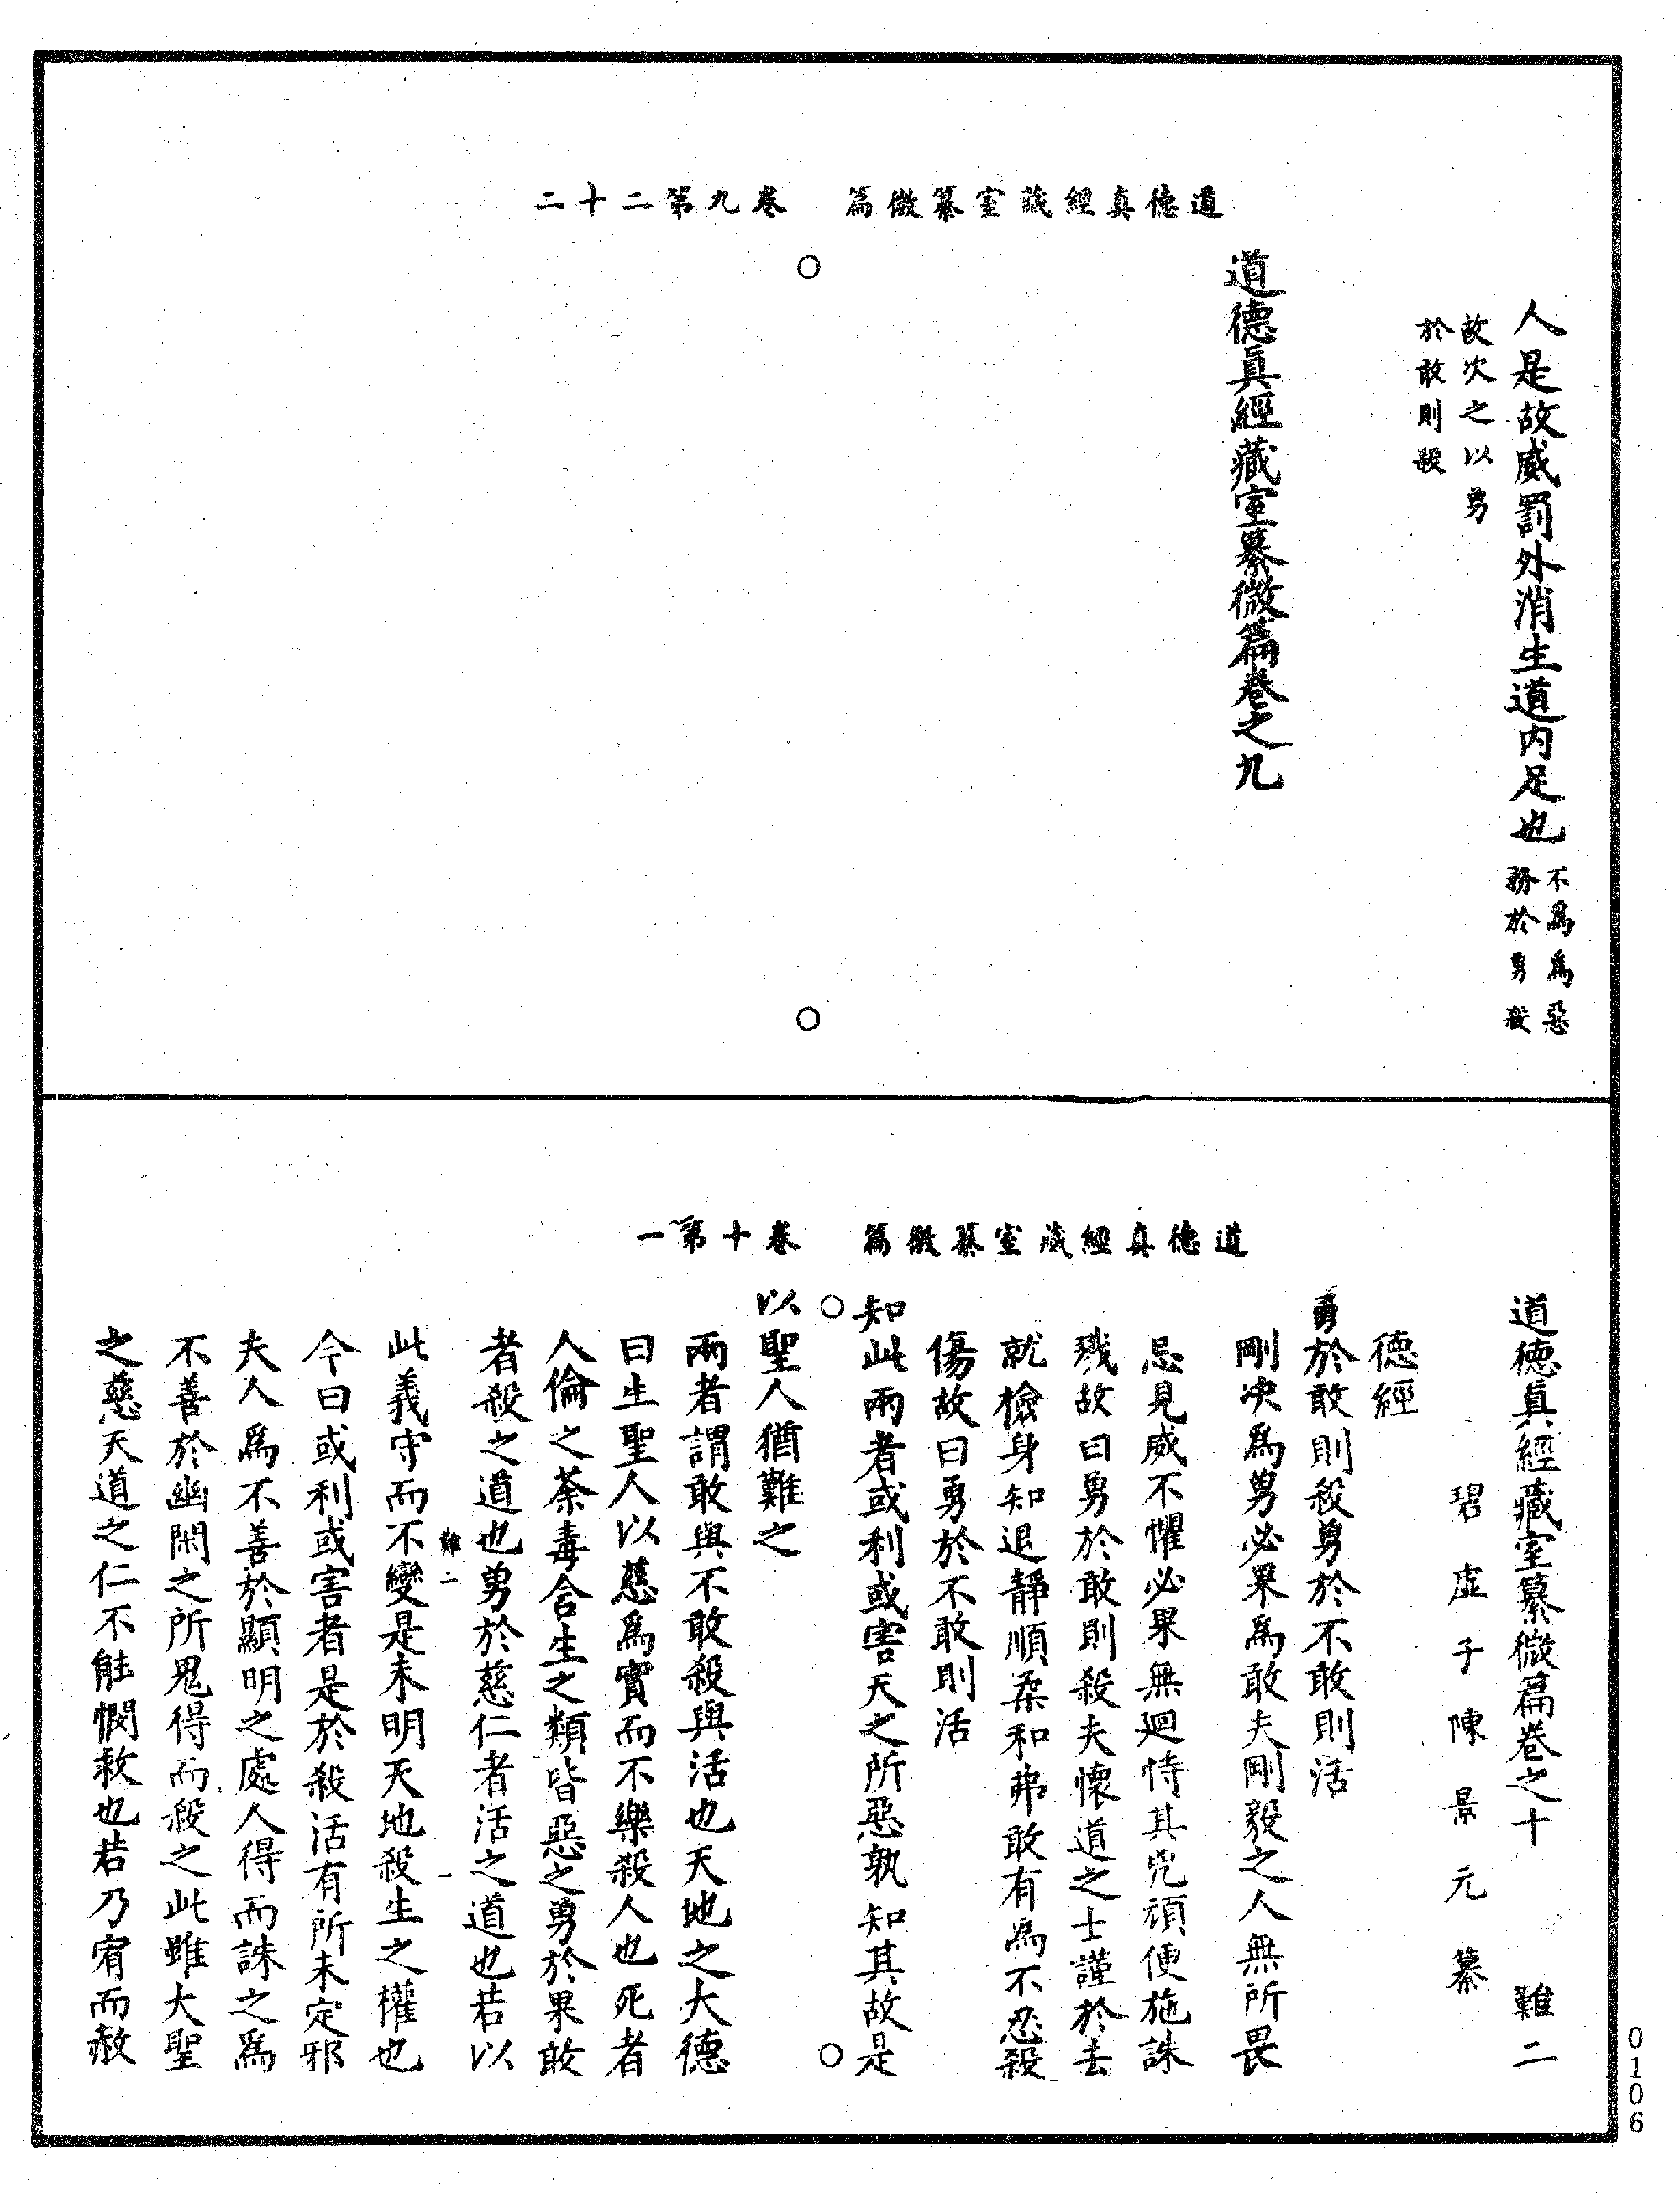 道德真經藏室纂微篇　卷九第二十二
人是故威罰外消生道内足也不為為惡
務於勇殺
故次之以勇
於敢則殺
道德真經藏室纂微篇卷之九
道德真經藏室纂微篇　卷十第一
道德真經藏室纂微篇卷之十　難二
碧虛子陳景元纂
德經
勇於敢則殺勇於不敢則活
剛決為勇必果為敢夫剛毅之人無所畏
忌見威不懼必果無廻恃其兇頑便施誅
戮故曰勇於敢則殺夫懷道之士謹於去
就檢身知退靜順柔和弗敢有為不忍殺
傷故曰勇於不敢則活
知此兩者或利或害天之所惡孰知其故是
以聖人猶難之
兩者謂敢與不敢殺與活也天地之大德
曰生聖人以慈為寳而不樂殺人也死者
人倫之荼毒含生之類皆惡之勇於果敢
者殺之道也勇於慈仁者活之道也若以
難二
此義守而不變是未明天地殺生之權也
今曰或利或害者是於殺活有所未定邪
夫人為不善於顯明之處人得而誅之為
不善於幽閑之所鬼得而殺之此雖大聖
之慈天道之仁不能憫救也若乃宥而赦
0106